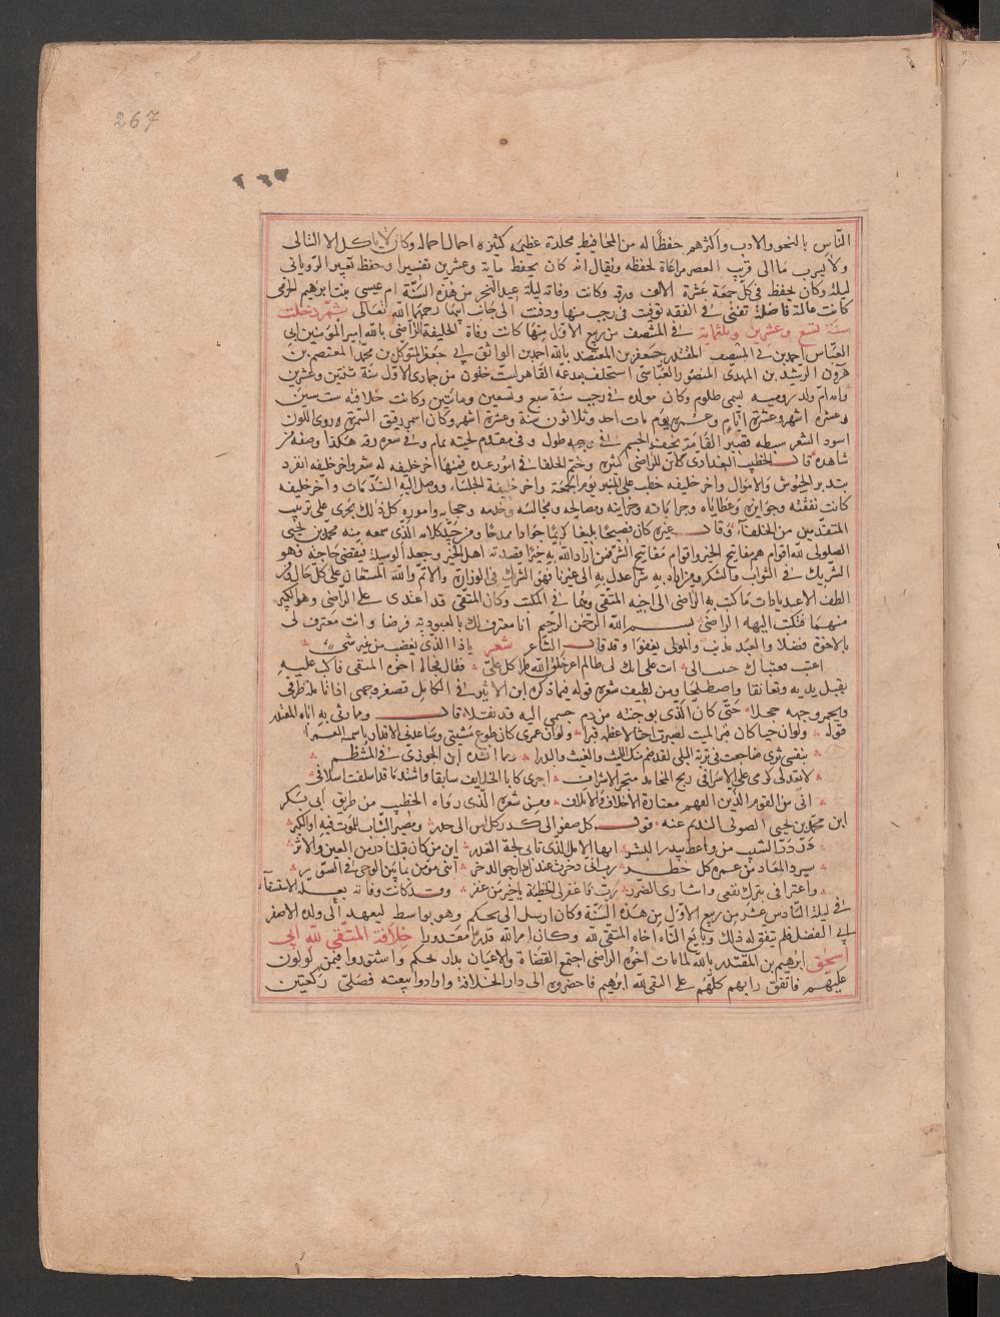 267
الناس بالنحو والادب واكثرهم حفظا له من المحافيظ مجلدة عظيمه كثيره احمال احماله وكان لا ياكل الا النقالى
ولا يشرب ماالى قريب العصر مراعاة لحفظه ويقال انه كان يحفظ ماية وعشرين تفسيرا وحفظ تعبير الرويا فى
ليلة وكان يحفظ فى كل جمعة عشرة الاف ورقه وكانت وفاته ليلة عيد النحر من هذه السنة ام عيسى بنت ابرهيم الحربى
كانت عالمة فاضلة تفتى فى الفقه توفيت فى رجب منها ودفنت الى جانب ابيها رحمهما الله تعالى ثمر دخلت
سنة تسع وعشرين وثلثماية فى المنتصف من ربيع الاول منها كانت وفاة الخليفة الراضى بالله امير المومنين ابى
العباس احمد بن المقتدر جعفر بن المعتضد بالله احمد بن الواثق ابى جعفر المتوكل بن محمد المعتصم بن
هرون الرشيد بن المهدى المنصور العباسى استخلف بعد عمه القاهر لست خلون من جمادى الاول سنة ثنتين وعشرين
وامه ام ولد روميه يسمى ظلوم وكان مولده فى رجب سنة سبع وتسعين ومايتين وكانت خلافته ست سنين
وعشره اشهر وعشرة ايام وعمره يوم مات احد وثلاثون سنة وعشرة اشهر وكان اسمر رقيق السمرة درى اللون
اسود الشعر سبطه قصير القامة نحيف الجسم فى وجهه طول وفى مقدم لحيته تمام وفى شعره رقه هكذا وصفه من
شاهده قال الخطيب البغدادى كان للراضى كثيره وختم الخلفا فى امور عده فمنها اخر خليفه له شعر واخر خليفه انفرد
بتدبير الجيوش والاموال واخر خليفه خطب على المنبر يوم الجمعة واخر خليفة الجلساء ووصل اليه الندمات واخر خليفه
كانت نفقته وجوايزه وعطاياه وجراياته وخزاينه ومطابخه ومجالسه وخدمه وحجابه واموره كل ذلك يجرى على ترتيب
المتقدمين من الخلفاء وقال غيره كان فصيحا بليغا كريما جوادا ممدحا ومن جيد كلامه الذى سمعه منه محمد بن يحيى
الصولى لله اقوام هم مفاتيح الخير واقوام مفاتيح الشر فمن اراد الله به خيرا قصد به اهل الخير وجعله الوسيلة فيقضى حاجته فهو
الشريك فى الثواب والشكر ومن اراد به شرا عدل به الى غيرنا فهو الشريك فى الوزر والاثم والله المستعان على كل حال ومن
الطف الاعتذارات ما كتب به الراضى الى اخيه المتقى وهما فى المكتب وكان المتقى قد اعتدى على الراضى وهو الكبير
منهما فكتب اليه الراضى بسم الله الرحمن الرحيم انا معترف لك بالعبودية فرضا وانت معترف لى
بالاخوة فضلا والعبد يذنب والمولى يعفوا وقد قال الشاعر شعر ياذا الذى يغضب من غير شى
اعتب فعتباك حبيب الى انت على انك لى ظالم اعز خلق الله طرا كل على فقال فجاء اليه اخوه المتقى فاكب عليه
يقبل يديه وتعانقا واصطلحا ومن لطيف شعره قوله فيما ذكره ابن الاثير فى الكامل تصفر وجهى اذا تامله طرفى
ويحمر وجهه خجلا حتى كان الذى بوجنته من دم جسمى اليه قد نقلا قال ومما رثى به اباه المقتدر
قوله ولو ان حيا كان قبرا لميت لصيرت احشاى لاعظمه قبرا ولو ان عمرى كان طوع مشيتى وساعدنى الاقدار قاسمته العمرا
بنفسى ثرى ضاجعت فى تربه البلى لقد ضم منك الليث والغيث والبدرا ومما انشده ابن الجوزى فى المنتظم
لا تعذلى كرمى على الاسراف ربح المحامد متجر الاشراف اجرى كابا الخلايف سابقا واشيد ما قد اسلفت اسلافى
انى من القوم الذين اكفهم معتادة الاخلاف والاتلاف ومن شعره الذى رواه الخطيب من طريق ابى بكر
ابن محمد بن يحيى الصولى النديم عنه قوله كل صفو الى كدر كل امن الى حذر ومصير الشباب للموت فيه او الكبر
در در المشيب من واعظ ينذر البشر ايها الامل الذى تاه فى لجة الغدر اين من كان قبلنا درس العين والاثر
سيرد المعاد من عمره كل خطر رب انى ذخرت عندك ارجوك مدخر اننى مومن بما بين الوحى فى السور
واعترافى بترك نفعى وايثارى الضرر رب فاغفر لى الخطية ياخير من غفر وقد كانت وفاته بعلة الاستسقا
فى ليلة السادس عشر من ربيع الاول من هذه السنة وكان ارسل الى بحكم وهو بواسط ليعهد الى ولده الاصغر
ابى الفضل فلم يتفق له ذلك وبايع الناس اخاه المتقى لله وكان امر الله قدرا مقدورا خلافة المتقى لله ابى
اسحق ابرهيم بن المقتدر بالله لما مات اخوه الراضى اجتمع القضاة والاعيان بدار بحكم واشتوروا فيمن يولون
عليهم فاتفق رايهم كلهم على المتقى لله ابرهيم فاحضروه الى دار الخلافة وارادوا بيعته فصلى ركعتين